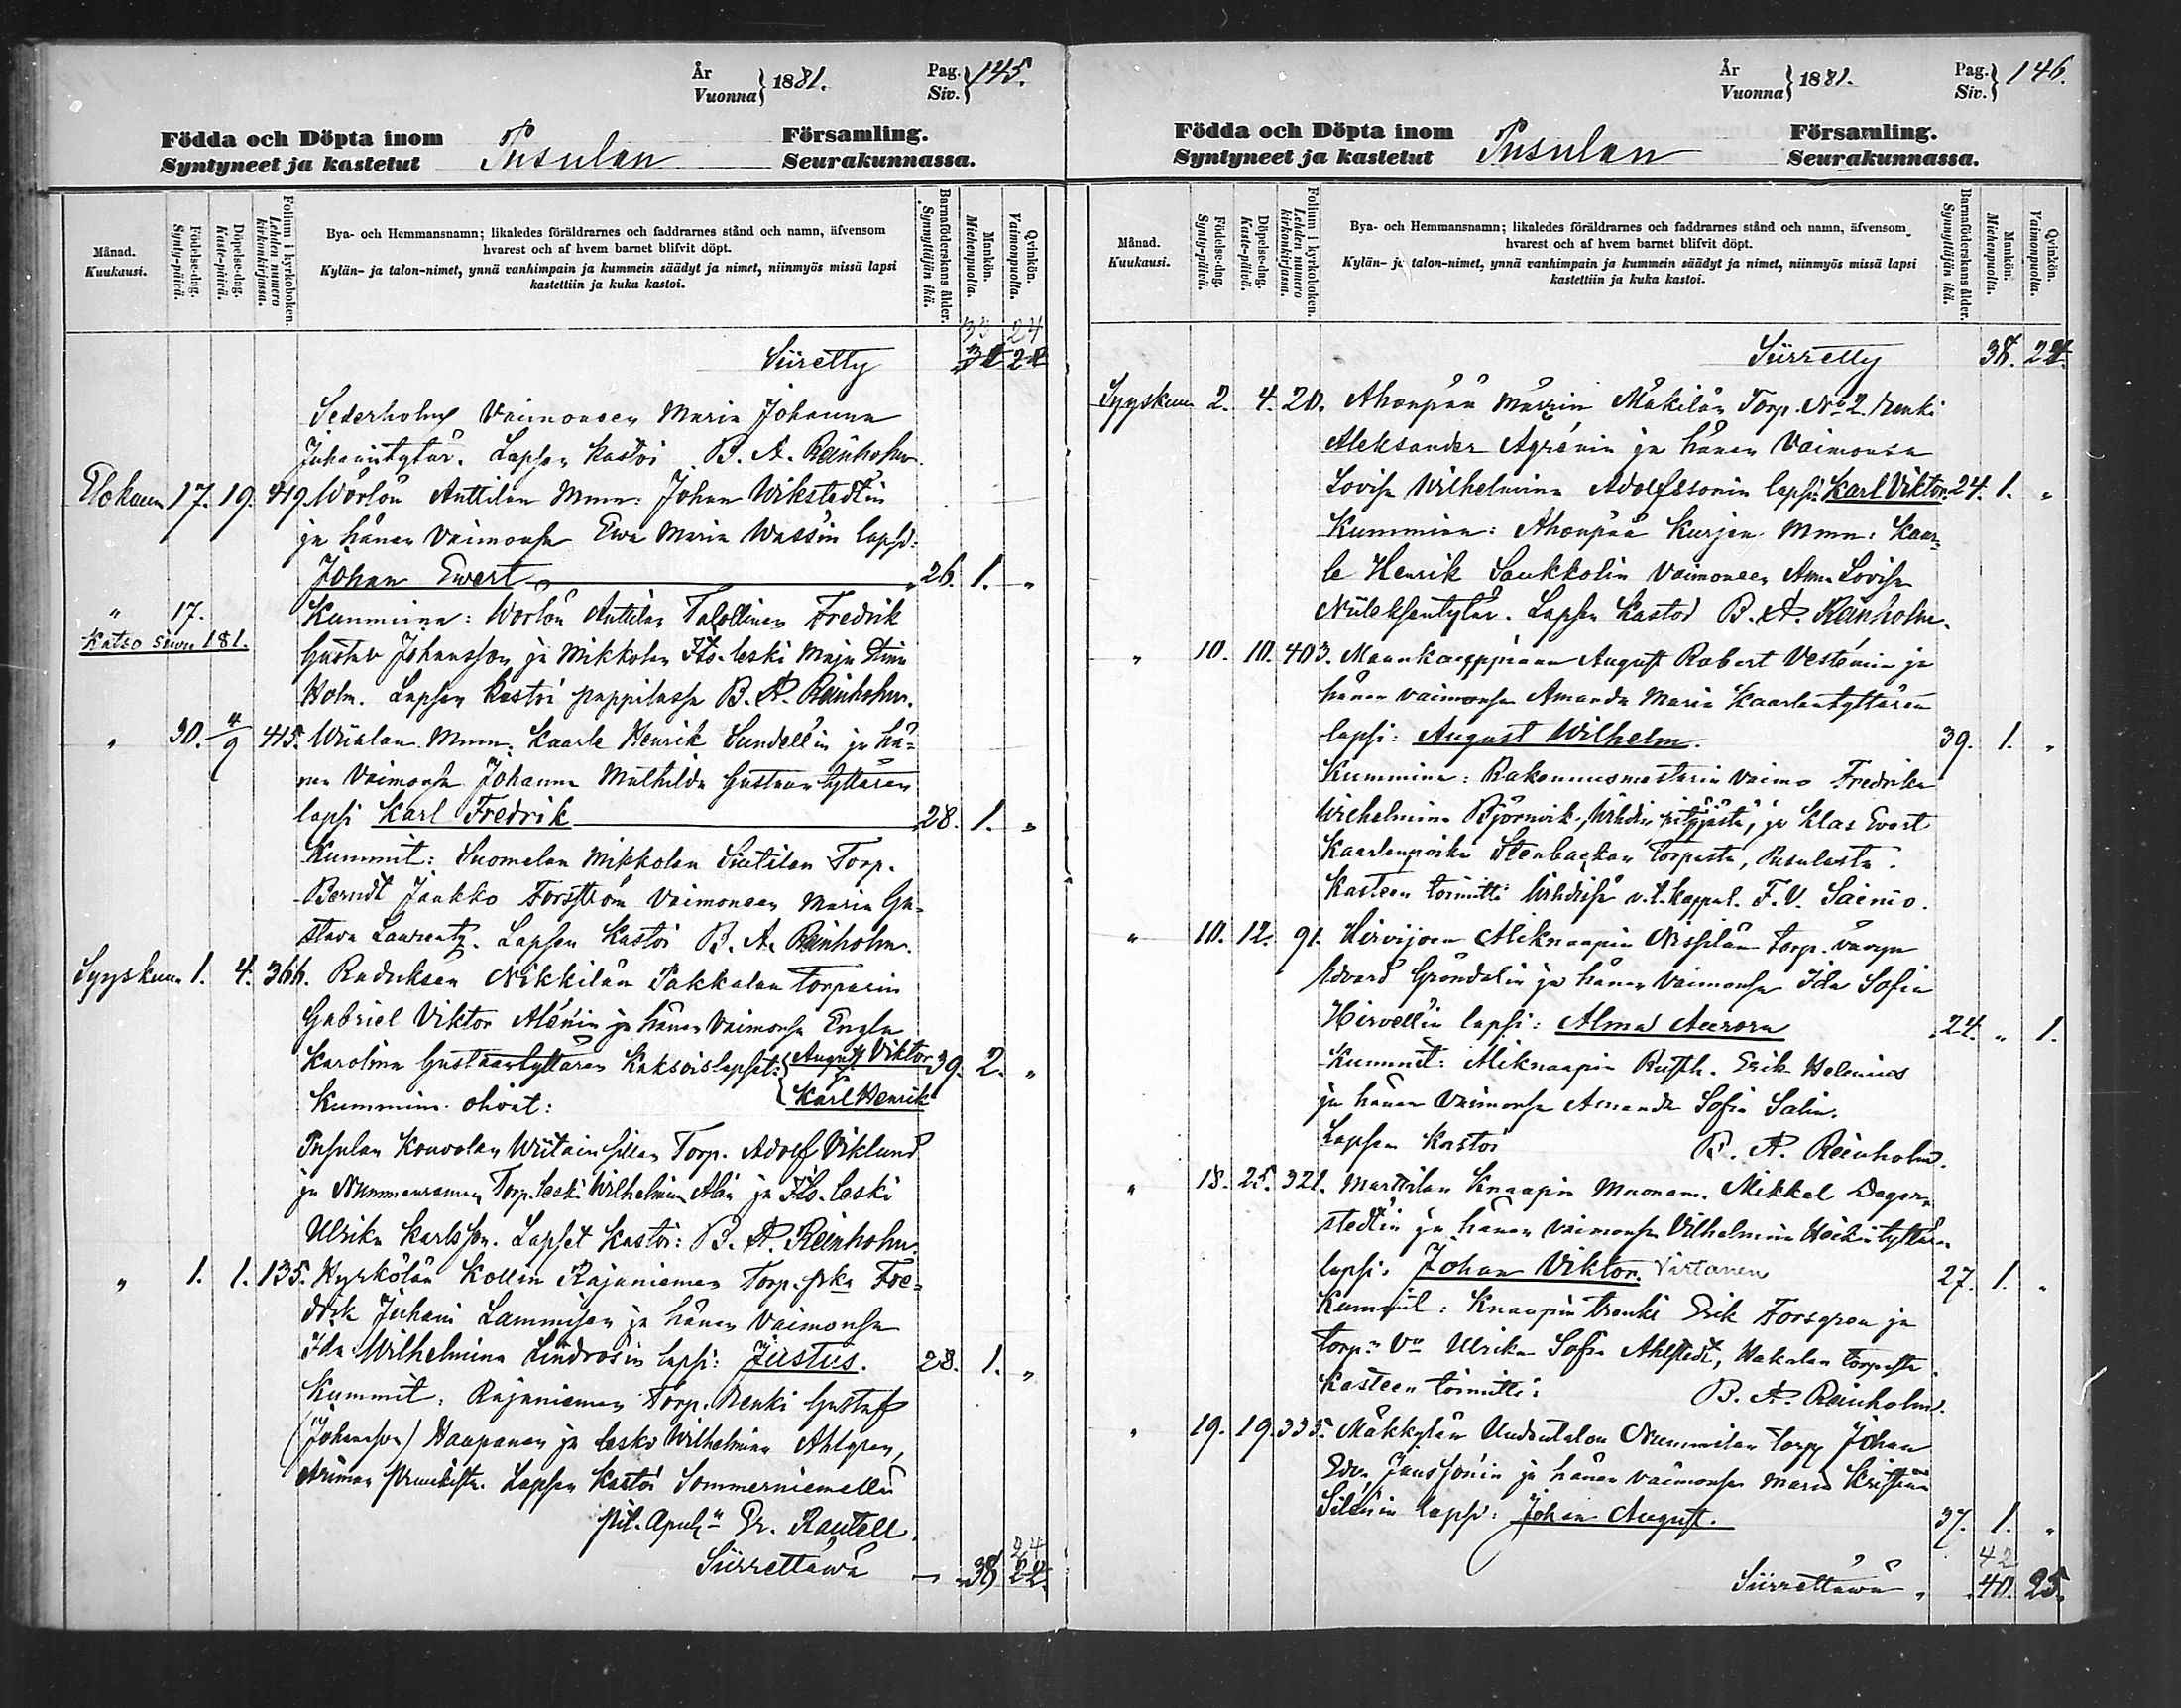 År
Vuonna } 1881.
Pag.
Siv. } 145.
Födda och Döpta inom
Syntyneet ja kastetut
Pusulan
Församling.
Seurakunnassa.
Månad.
Kuukausi.
Födelse-dag.
Synty-päivä.
Döpelse-dag.
Kaste-päivä.
Folium i kyrkoboken.
Lehden numero kirkonkirjassa.
Bya- och Hemmansnamn; likaledes föräldrarnes och faddrarnes stånd och namn, äfvensom
hvarest och af hvem barnet blifvit döpt.
Kylän- ja talon-nimet, ynnä vanhimpain ja kummein säädyt ja nimet, niinmyös missä lapsi
kastettiin ja kuka kastoi.
Barnaföderskans ålder.
Synnyttäjän ikä.
Mankön.
Miehenpuolia.
Qvinkön.
Vaimonpuolia.
33 24
Siiretty
Sederholm Vaimoneen Maria Johanna
Juhanintytär. Lapsen kastoi B. A. Reinholm.
Elokuun 17. 19. 419. Wörlön Anttilan Mmn: Johan Wikstedtin
ja hänen Vaimonsa Ewa Maria Wassin lapsi:
Johan Ewert 26. 1. "
" 17. Kummina: Worlön Anttilan Talollinen Fredrik
Katso sivu 181. Gustav Johansson ja Mikkolan Its. leski Maja Stina
Holm. Lapsen kastoi pappilassa B. A. Reinholm.
" 30. 4/9 415. Wiialan Mmn. Kaarle Henrik Sundellin ja hä-
nen Vaimonsa Johanna Mathilda Gustaantyttären
lapsi Karl Fredrik 28. 1. "
Kummit: Suomelan Mikkolan Torp.
Berndt Jaakko Forsström Vaimoneen Maria Gu-
stava Laurentz. Lapsen kastoi B. A. Reinholm.
Syyskuun 1. 4. 366. Raduksen Nikkilän Pakkalan Torparin
Gabriel Viktor Alénin ja hänen Vaimonsa Engla
Karolina Gustaantyttären Kaksoislapset: { August Viktor 39. 2. "
ja
Karl Henrik
Kummina olivat:
Pusulan Kouvolan Torp. Adolf Viklund
ja Nummensaman Torp. leski Wilhelmina Alin ja Its. leski
Ulrika Karlsson. Lapset kastoi: B. A. Reinholm.
" 1. 1. 135. Hyrkölän Kollin Rajaniemen Torp. Fre-
drik Juhani Lammisen ja hänen Vaimonsa
Ida Wilhelmina Lindrosin lapsi: Justus. 28. 1. "
Kummit: Rajaniemen Torp. Renki Gustaf
(Johansson) Haapanen ja leski Wilhelmina Ahlgren,
Lapsen kastoi Sommerniemellä
pit. Apul. Gr. Rautell.
24
Siirrettäwä
År
Vuonna } 1881.
Pag.
Siv. } 146.
Födda och Döpta inom
Syntyneet ja kastetut
Pusulan
Församling.
Seurakunnassa.
Månad.
Kuukausi.
Födelse-dag.
Synty-päivä.
Döpelse-dag.
Kaste-päivä.
Folium i kyrkoboken.
Lehden numero kirkonkirjassa.
Bya- och Hemmansnamn; likaledes föräldrarnes och faddrarnes stånd och namn, äfvensom
hvarest och af hvem barnet blifvit döpt.
Kylän- ja talon-nimet, ynnä vanhimpain ja kummein säädyt ja nimet, niinmyös missä lapsi
kastettiin ja kuka kastoi.
Barnaföderskans ålder.
Synnyttäjän ikä.
Mankön.
Miehenpuolia.
Qvinkön.
Vaimonpuolia.
Siirretty
Syyskuun 2. 4. 20. Ahonpään Mäkilän Torp. No 2. Renki
Aleksander Agrénin ja hänen Vaimonsa
Lovisa Wilhelmina Adolfssonin lapsi: Karl Viktor 24. 1. "
Kummina: Ahonpää Kurjen Mmn: Kaar-
le Henrik Saukkolin Vaimoneen Anna Lovisa
Niileksentytär. Lapsen kastoi B. A. Reinholm.
" 10. 10. 403. Maankauppiaan August Robert Vesténin ja
hänen vaimonsa Amanda Maria Kaarlentyttären
lapsi: August Wilhelm. 39. 1. "
Kummina: Rakennusmestarin vaimo Fredrika
Wilhelmina Björnvik, Wihdin pitäjästä, ja Klas Evert
Kaarlenpoika Stenbackan torpasta, Pusulasta.
Kasteen toimitti Wihdissä v.t. kappal. F. V. Sainio.
" 10. 12. 91. Hirvijoen Aliknaapin Nissilän torp. vävyn
Edvard Gröndalin ja hänen Vaimonsa Ida Sofia
Hirvellin lapsi: Alma Aurora 24. " 1.
Kummit: Aliknaapin Rusth. Erik Helenius
ja hänen Vaimonsa Amanda Sofia Salin.
Lapsen kastoi B. A. Reinholm.
" 18. 25. 321. Marttilan Knaapin Muonam. Mikkel Dager-
stedtin ja hänen vaimonsa Vilhelmina Heikintyttären
lapsi: Johan Viktor. Virtanen 27. 1. "
Kummit: Knaapin trenki Erik Forsgren ja
torp:n Vo Ulrika Sofia Ahlstedt, Hakalan torpasta.
Kasteen toimitti: B. A. Reinholm.
" 19. 19. 335. Mäkkylän Uudentalon Nummilan torp Johan
Edv. Janssonin ja hänen vaimonsa Maria Kristina
Silénin lapsi: Johan August. 37. 1. "
42
Siirrettäwä " 40. 25.